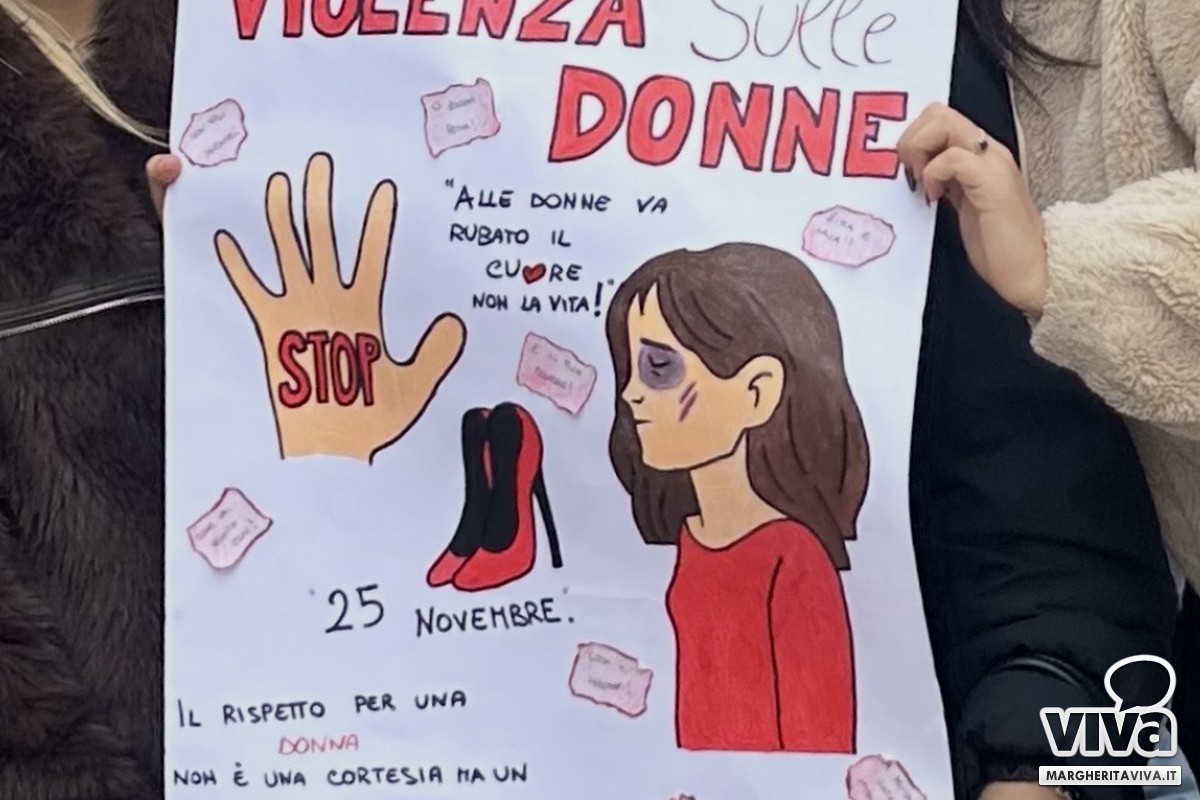 VIOLENZA sulle
DONNE
"ALLE DONNE VA
RUBATO IL
CUORE
NON LA VITA!"
STOP
"25 NOVEMBRE".
IL RISPETTO PER UNA
DONNA
NON È UNA CORTESIA MA UN
viva
MARGHERITAVIVA.IT